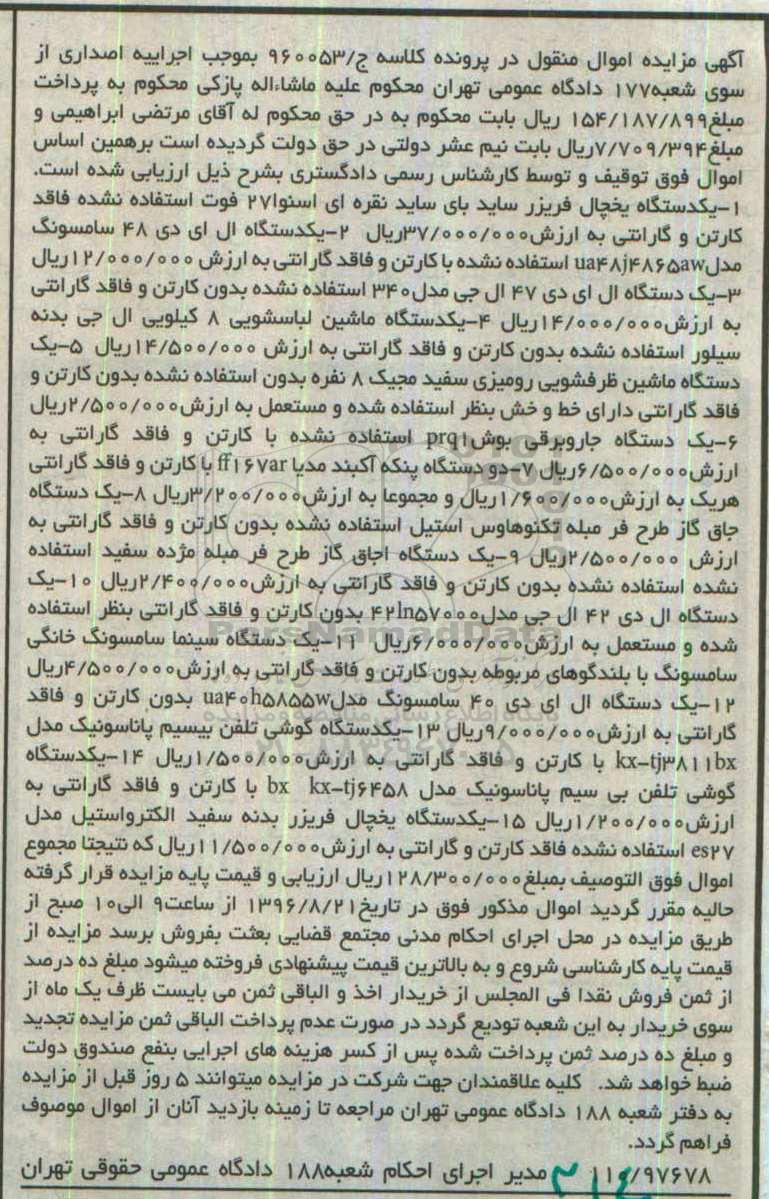 آگهی مزایده اموال منقول در پرونده کلاسه ج/۹۶۰۰۵۳ بموجب اجراییه اصداری از
سوی شعبه۱۷۷ دادگاه عمومی تهران محکوم علیه ماشاءاله پازکی محکوم به پرداخت
مبلغ۱۵۴/۱۸۷/۸۹۹ ریال بابت محکوم به در حق محکوم له آقای مرتضی ابراهیمی و
مبلغ۷/۷۰۹/۳۹۴ریال بابت نیم عشر دولتی در حق دولت گردیده است برهمین اساس
اموال فوق توقیف و توسط کارشناس رسمی دادگستری بشرح ذیل ارزیابی شده است.
۱-یکدستگاه یخچال فریزر ساید بای ساید نقره ای اسنوا۲۷ فوت استفاده نشده فاقد
کارتن و گارانتی به ارزش۳۷/۰۰۰/۰۰۰ریال ۲-یکدستگاه ال ای دی ۴۸ سامسونگ
مدلua۴۸j۴۸۶۵aw استفاده نشده با کارتن و فاقد گارانتی به ارزش ۱۲/۰۰۰/۰۰۰ریال
۳-یک دستگاه ال ای دی ۴۷ ال جی مدل۳۴۰ استفاده نشده بدون کارتن و فاقد گارانتی
به ارزش۱۴/۰۰۰/۰۰۰ریال ۴-یکدستگاه ماشین لباسشویی ۸ کیلویی ال جی بدنه
سیلور استفاده نشده بدون کارتن و فاقد گارانتی به ارزش ۱۴/۵۰۰/۰۰۰ریال ۵-یک
دستگاه ماشین ظرفشویی رومیزی سفید مجیک ۸ نفره بدون استفاده نشده بدون کارتن و
فاقد گارانتی دارای خط و خش بنظر استفاده شده و مستعمل به ارزش۲/۵۰۰/۰۰۰ریال
۶-یک دستگاه جاروبرقی بوش prq۱ استفاده نشده با کارتن و فاقد گارانتی به
ارزش۶/۵۰۰/۰۰۰ریال ۷-دو دستگاه پنکه آکبند مدیا ff۱۶۷ar با کارتن و فاقد گارانتی
هریک به ارزش۱/۶۰۰/۰۰۰ریال و مجموعا به ارزش۳/۲۰۰/۰۰۰ریال ۸-یک دستگاه
جاق گاز طرح فر مبله تکنوهاوس استیل استفاده نشده بدون کارتن و فاقد گارانتی به
ارزش ۲/۵۰۰/۰۰۰ریال ۹-یک دستگاه اجاق گاز طرح فر مبله مژده سفید استفاده
نشده استفاده نشده بدون کارتن و فاقد گارانتی به ارزش۲/۴۰۰/۰۰۰ریال ۱۰-یک
دستگاه ال دی ۴۲ ال جی مدل۴۲ln۵۷۰۰۰ بدون کارتن و فاقد گارانتی بنظر استفاده
شده و مستعمل به ارزش۶/۰۰۰/۰۰۰ریال ۱۱-یک دستگاه سینما سامسونگ خانگی
سامسونگ با بلندگوهای مربوطه بدون کارتن و فاقد گارانتی به ارزش۴/۵۰۰/۰۰۰ریال
۱۲-یک دستگاه ال ای دی ۴۰ سامسونگ مدلua۴۰h۵۸۵۵w بدون کارتن و فاقد
گارانتی به ارزش۹/۰۰۰/۰۰۰ریال ۱۳-یکدستگاه گوشی تلفن بیسیم پاناسونیک مدل
kx-tj۳۸۱۱bx با کارتن و فاقد گارانتی به ارزش۱/۵۰۰/۰۰۰ریال ۱۴-یکدستگاه
گوشی تلفن بی سیم پاناسونیک مدل bx kx-tj۶۴۵۸ با کارتن و فاقد گارانتی به
ارزش۱/۲۰۰/۰۰۰ریال ۱۵-یکدستگاه یخچال فریزر بدنه سفید الکترواستیل مدل
es۲۷ استفاده نشده فاقد کارتن و گارانتی به ارزش۱۱/۵۰۰/۰۰۰ریال که نتیجتا مجموع
اموال فوق التوصیف بمبلغ۱۲۸/۳۰۰/۰۰۰ریال ارزیابی و قیمت پایه مزایده قرار گرفته
حالیه مقرر گردید اموال مذکور فوق در تاریخ۱۳۹۶/۸/۲۱ از ساعت۹ الی۱۰ صبح از
طریق مزایده در محل اجرای احکام مدنی مجتمع قضایی بعثت بفروش برسد مزایده از
قیمت پایه کارشناسی شروع و به بالاترین قیمت پیشنهادی فروخته میشود مبلغ ده درصد
از ثمن فروش نقدا فی المجلس از خریدار اخذ و الباقی ثمن می بایست ظرف یک ماه از
سوی خریدار به این شعبه تودیع گردد در صورت عدم پرداخت الباقی ثمن مزایده تجدید
و مبلغ ده درصد ثمن پرداخت شده پس از کسر هزینه های اجرایی بنفع صندوق دولت
ضبط خواهد شد. کلیه علاقمندان جهت شرکت در مزایده میتوانند ۵ روز قبل از مزایده
به دفتر شعبه ۱۸۸ دادگاه عمومی تهران مراجعه تا زمینه بازدید آنان از اموال موصوف
فراهم گردد.
۱۱۰/۹۷۶۷۸ مدیر اجرای احکام شعبه۱۸۸ دادگاه عمومی حقوقی تهران